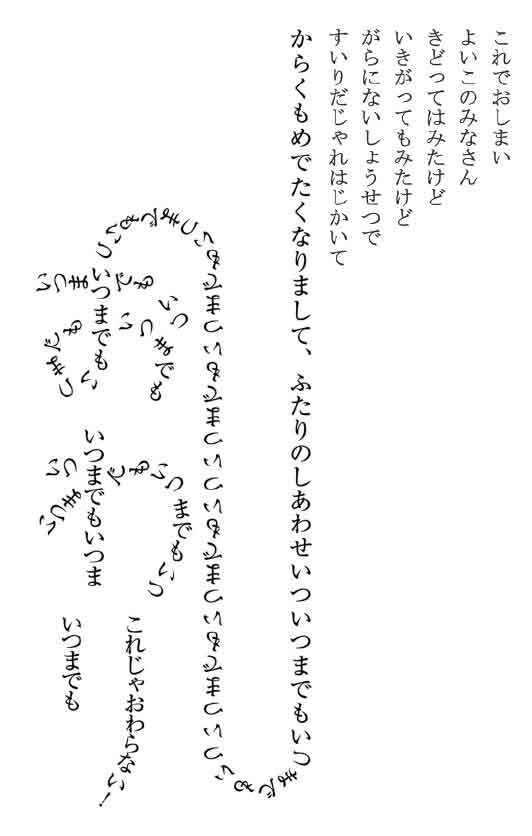 これでおしまい
よいこのみなさん
きどってはみたけど
いきがってもみたけど
がらにないしょうせつで
すいりだじゃれはじかいて
からくもめでたくなりまして、ふたりのしあわせいついつまでもいつまでもいついつまでもいつまでもいついつまでもいつまでもいつまでもいつ
いつまでも
いつまでも
いつ
いつまでも
いつまでもい
いつまでもいつま
いつまでもいつ
いつまでもいつ
いつま
これじゃおわらない!
いつまでも